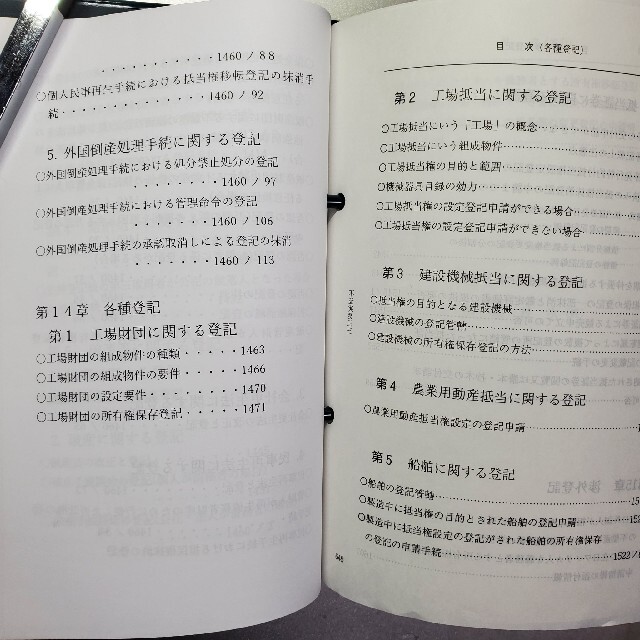 ・・・・・・・・・・・・1460/88
○個人民事再生手続における抵当権移転登記の抹消手
続・・・・・・・・・・・・1460/92
5. 外国倒産処理手続に関する登記
○外国倒産処理手続における処分禁止処分の登記
・・・・・・・1460/97
○外国倒産処理手続における管理命令の登記
・・・・・・・1460/106
○外国倒産処理手続の承認取消しによる登記の抹消
・・・・・・・1460/113
第14章 各種登記
第1 工場財団に関する登記
○工場財団の組成物件の種類・・・・・1463
○工場財団の組成物件の要件・・・・・1466
○工場財団の設定要件・・・・・・・・1470
○工場財団の所有権保存登記・・・・・1471
目 次(各種登記)
第2 工場抵当に関する登記
○工場抵当にいう「工場」の概念
○工場抵当にいう組成物件
○工場抵当権の目的と範囲
○機械器具目録の効力
○工場抵当権の設定登記申請ができる場合
○工場抵当権の設定登記申請ができない場合
第3 建設機械抵当に関する登記
○抵当権の目的となる建設機械
○建設機械の登記管轄
○建設機械の所有権保存登記の方法
第4 農業用動産抵当に関する登記
○農業用動産抵当権設定の登記申請
第5 船舶に関する登記
○船舶の登記管轄
○製造中に抵当権の目的とされた船舶の登記申請
○製造中に抵当権設定の登記がされた船舶の所有権保存
の登記の申請手続 1522/